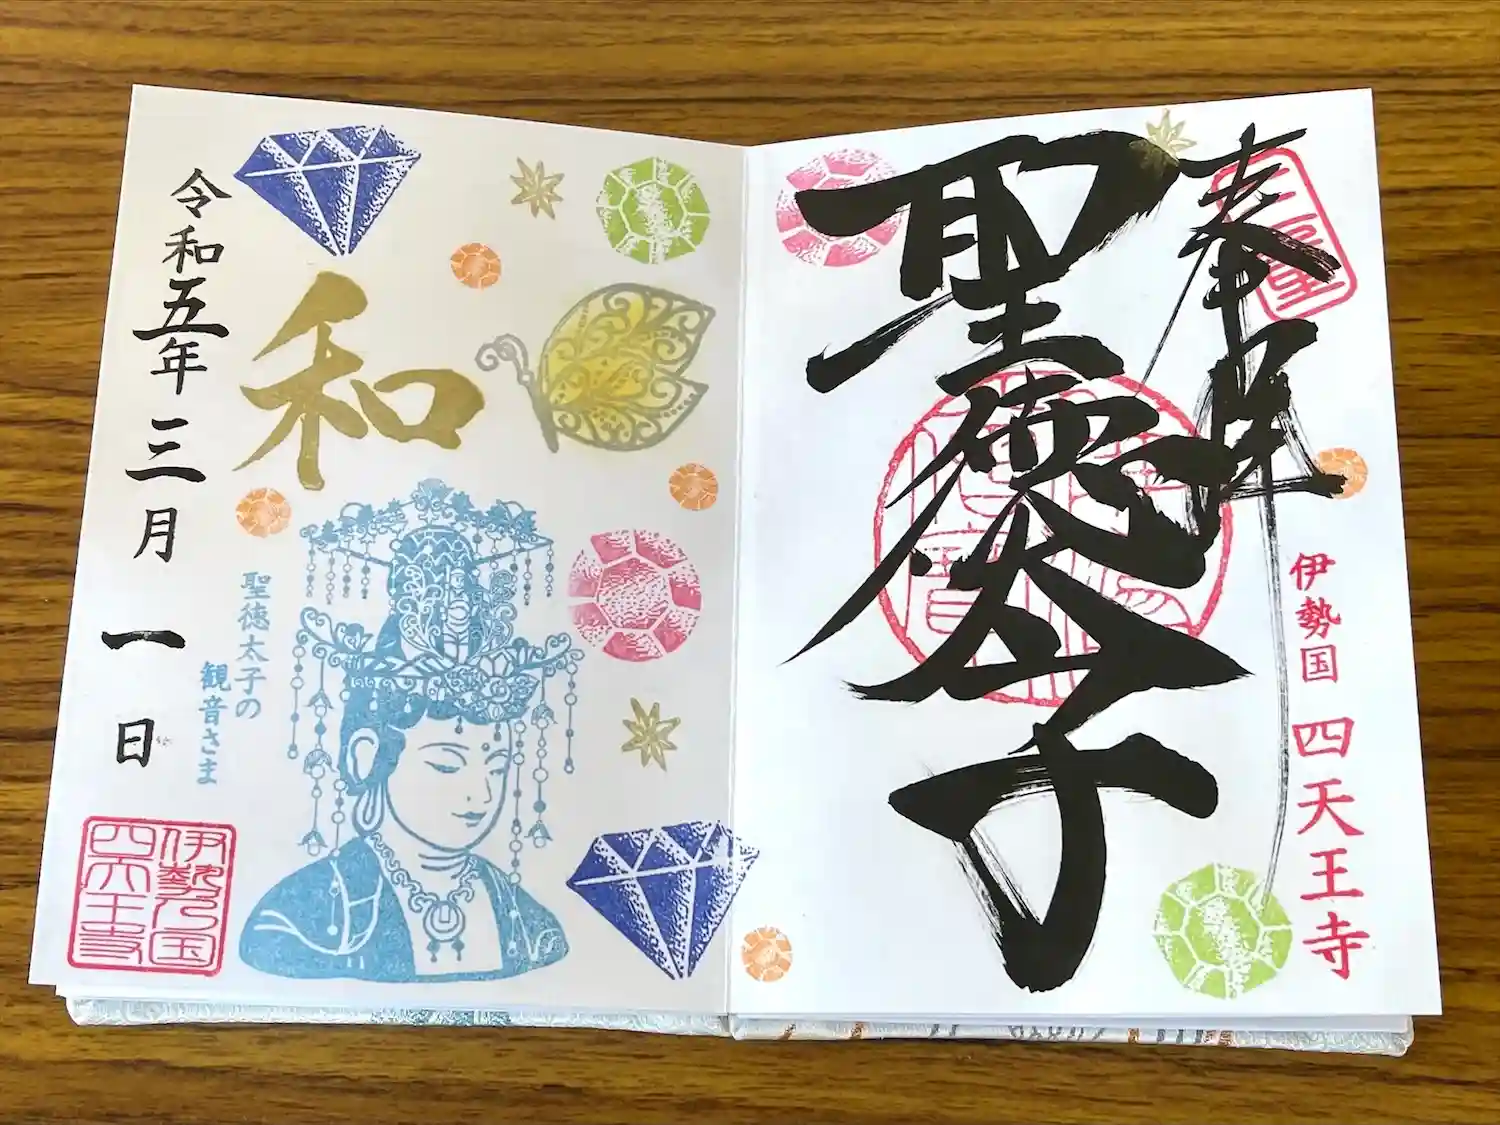 奉拝
聖徳太子
伊勢国 四天王寺
和
聖徳太子の
観音さま
令和五年三月一日
伊勢乃国
四天王寺